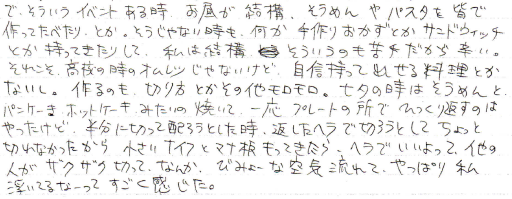 で、そういうイベントある時、お昼が結構、そうめんやパスタを皆で
作ってたべたり、とか。そうじゃない時も、何か手作りおかずとかサンドウィッチ
とか持ってきたりして、私は結構そういうのも苦手だから辛い。
それこそ、高校の時のオムレツじゃないけど、自信持って出せる料理とか
ないし。作るのも、切り方とかその他モロモロ。七夕の時はそうめんと、
パンケーキ、ホットケーキみたいの焼いて、一応プレートの所でひっくり返すのは
やったけど、半分に切って配ろうとした時、返したヘラで切ろうとしてちょっと
切れなかったから小さいナイフとマナ板もってきたら、ヘラでいいよって、他の
人がザクザク切って、なんか、びみょーな空気流れて、やっぱり私
浮いてるなーってすごく感じた。